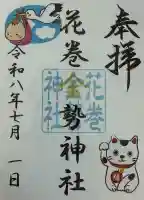 奉拝
花巻金勢神社
令和八年七月一日
花巻
金勢
神社